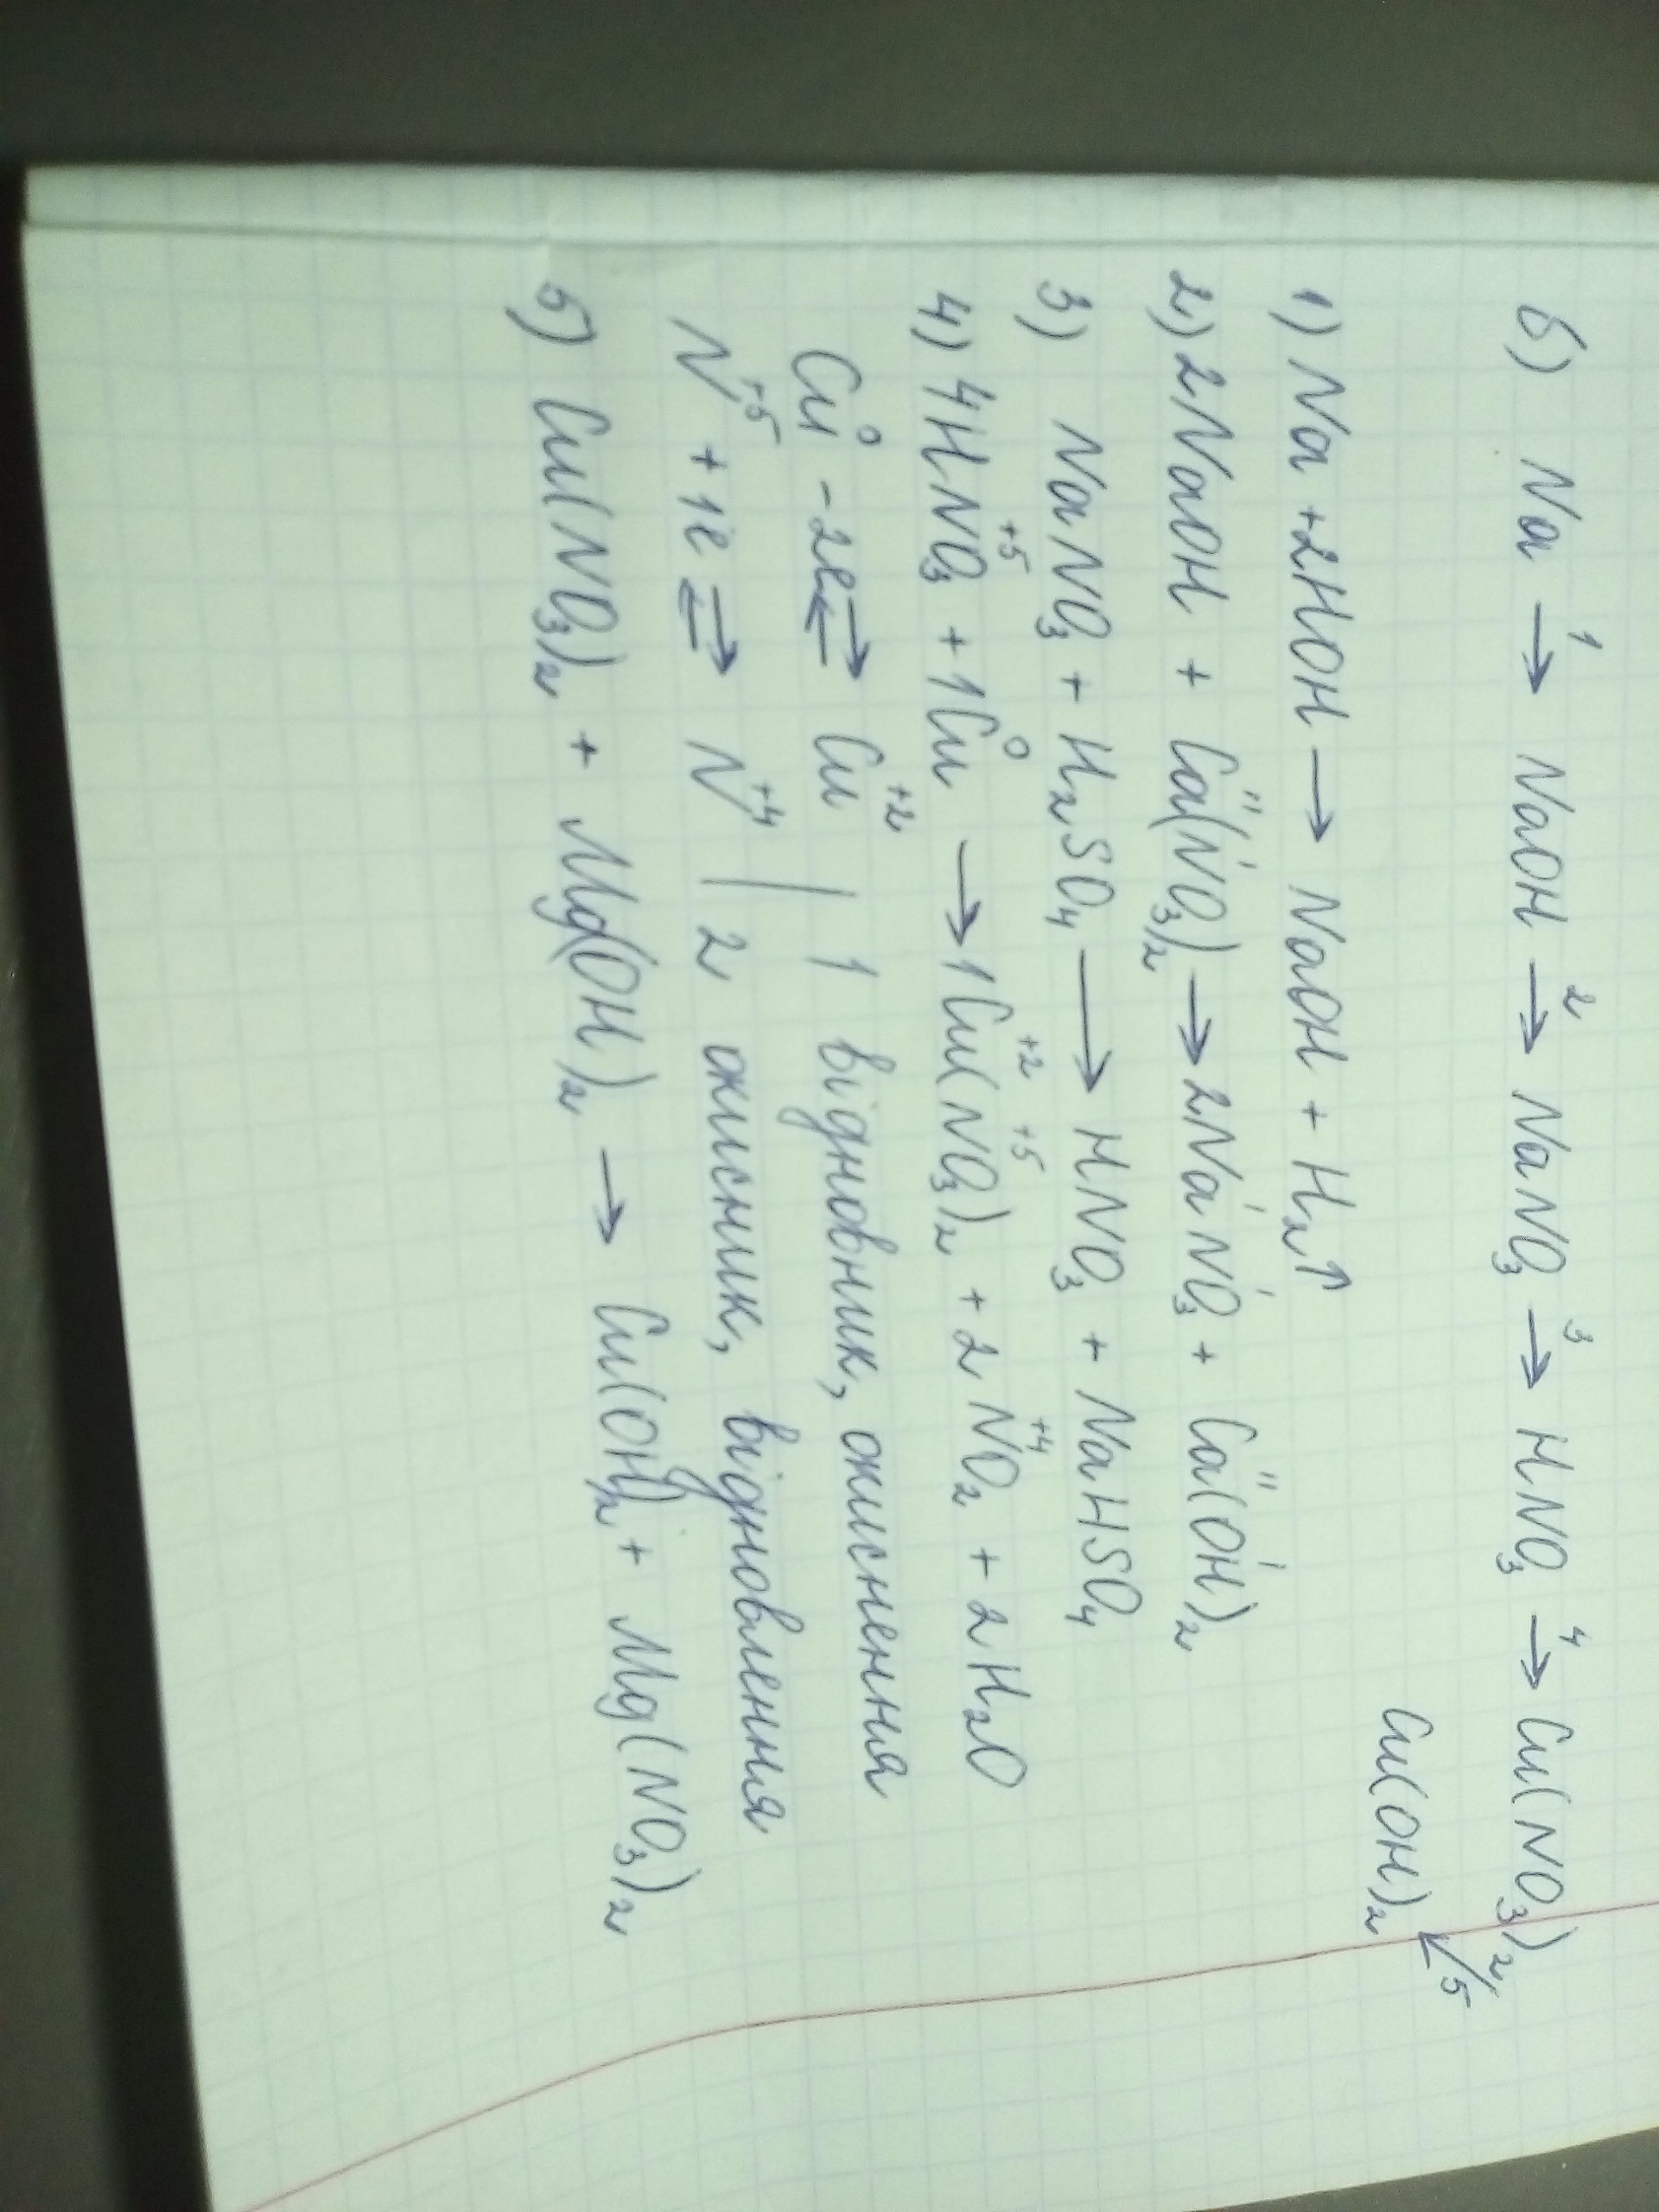 б) Na →¹ NaOH →² NaNO₃ →³ HNO₃ →⁴ Cu(NO₃)₂
↙5
Cu(OH)₂
1) Na + 2HOH → NaOH + H₂↑
2) 2NaOH + Ca^{II}(N^{I}O₃)₂ → 2Na^{I}N^{I}O₃ + Ca^{II}(OH)^{I}₂
3) NaNO₃ + H₂SO₄ → HNO₃ + NaHSO₄
4) 4HN⁺⁵O₃ + 1Cu⁰ → 1Cu⁺²(N⁺⁵O₃)₂ + 2N⁺⁴O₂ + 2H₂O
Cu⁰ - 2e ⇄ Cu⁺² | 1 відновник, окиснення
N⁺⁵ + 1e ⇄ N⁺⁴ | 2 окисник, відновлення
5) Cu(NO₃)₂ + Mg(OH)₂ → Cu(OH)₂ + Mg(NO₃)₂